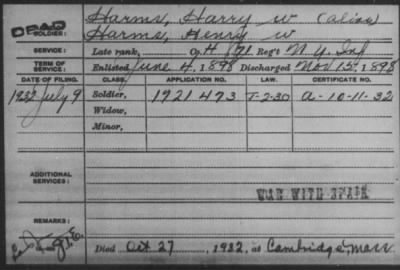 Harms, Harry W (alias)
DEAD
SOLDIER: Harms, Henry W
SERVICE: Late rank, Co. H 71 Reg't N.Y. Inf
TERM OF SERVICE: Enlisted June 4, 1898 Discharged Nov 15, 1898
DATE OF FILING. CLASS. APPLICATION NO. LAW. CERTIFICATE NO.
1932 July 9 Soldier, 1921493 J-2-30 A-10-11-32
Widow,
Minor,
ADDITIONAL SERVICES:
WAR WITH SPAIN
REMARKS:
Died Oct 27, 1932, at Cambridge, Mass